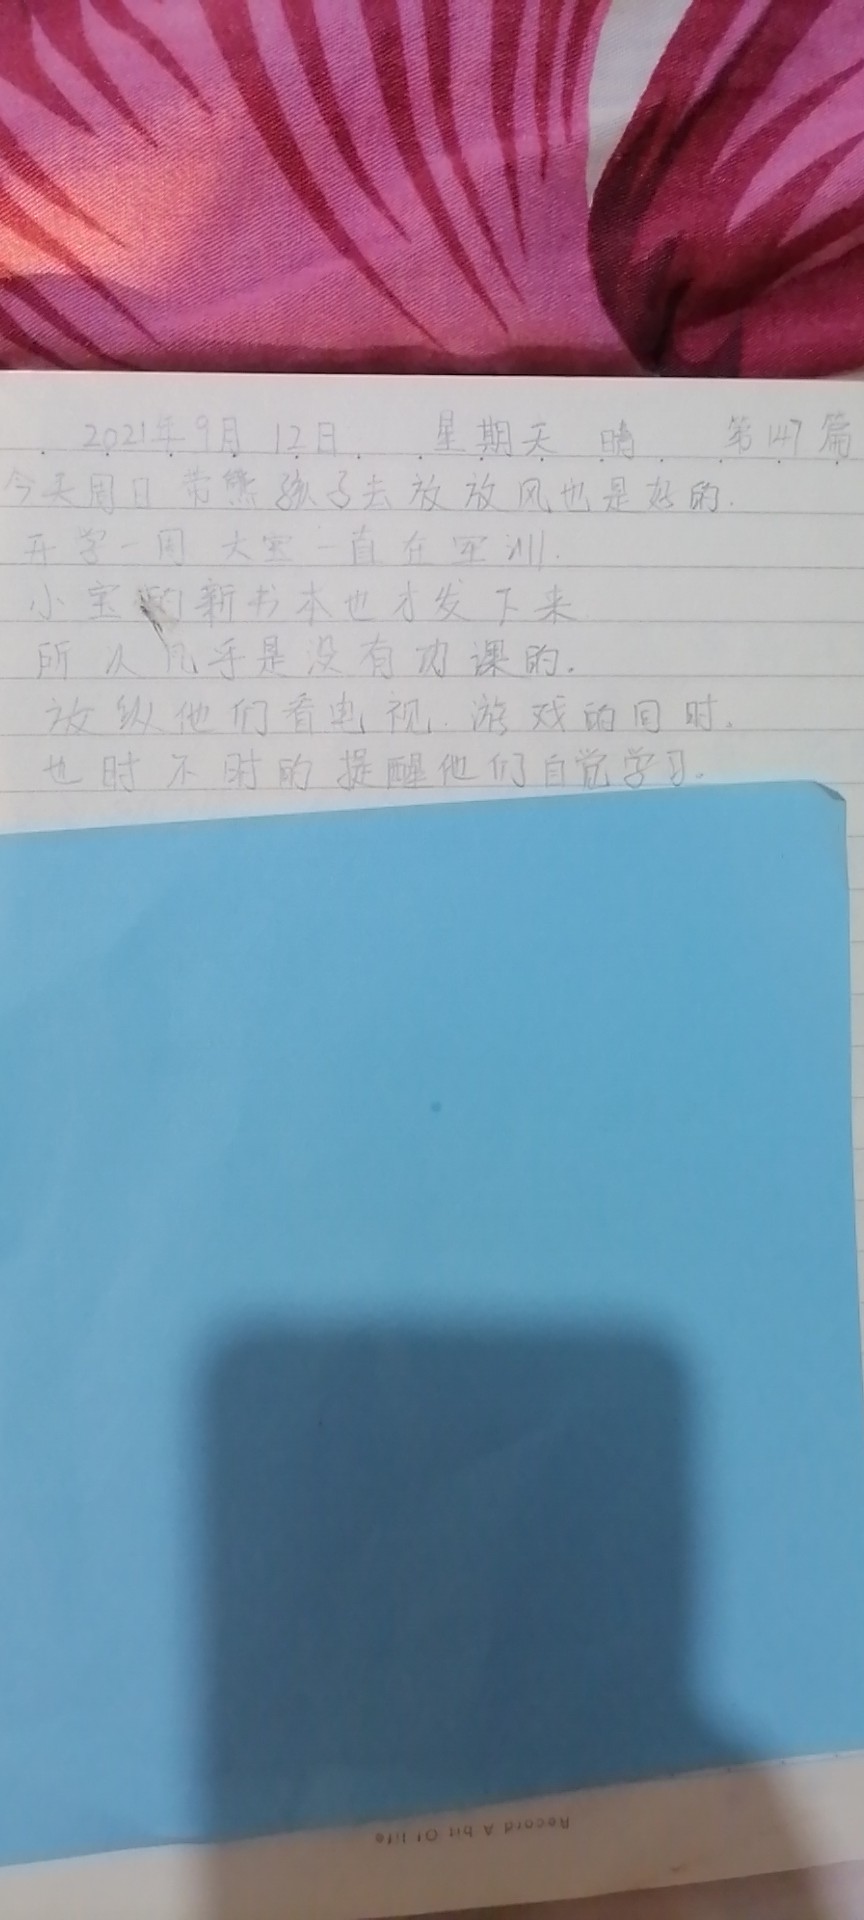 2021年9月12日. 星期天 晴 第147篇
今天周日带熊孩子去放放风也是好的.
开学一周 大宝一直在军训.
小宝的新书本也才发下来
所以几乎是没有功课的.
放纵他们看电视.游戏的同时.
也时不时的提醒他们自觉学习.
Record A bit Of life